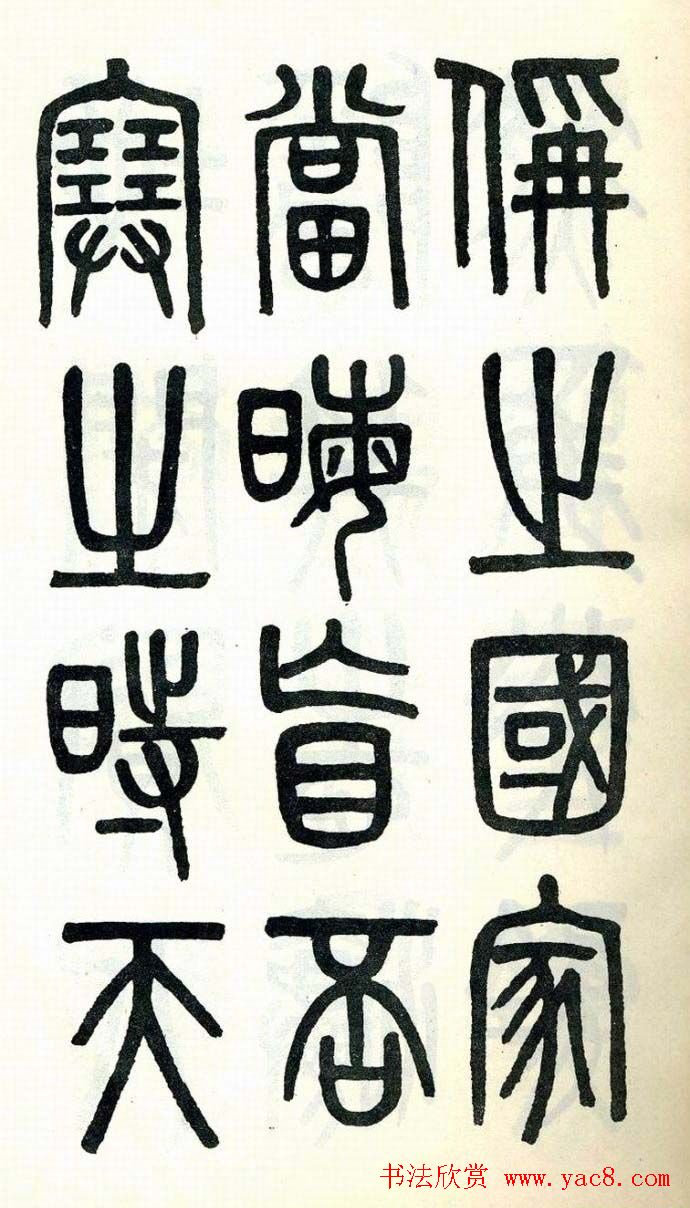 偁之國家
當晦盲否
塞之時天
书法欣赏 www.yac8.com